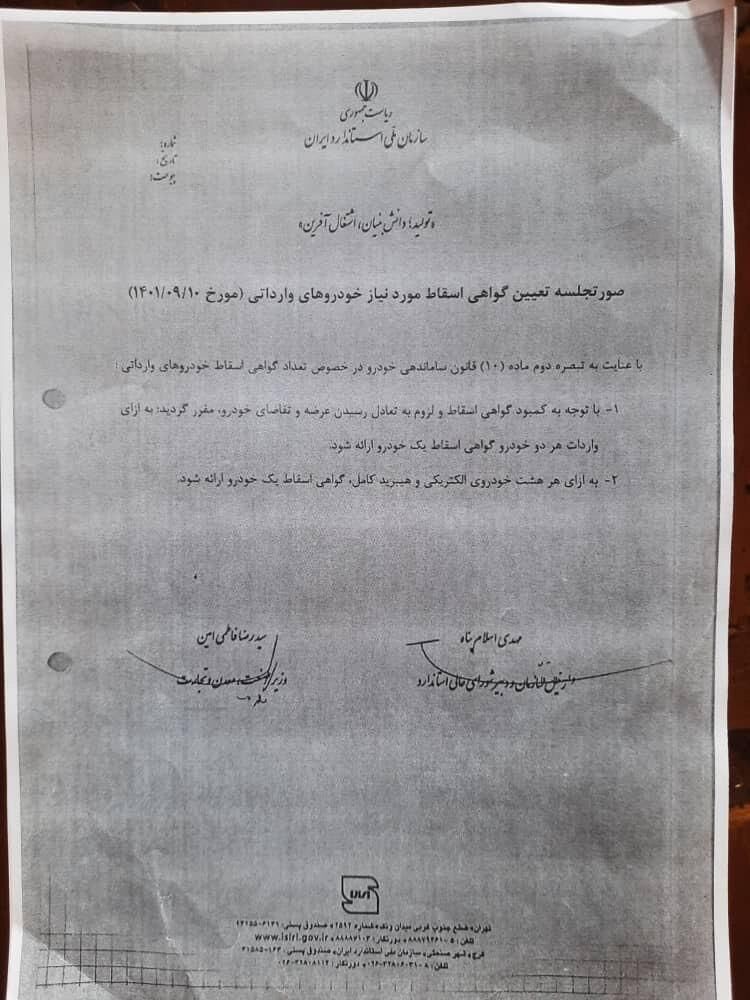 ریاست جمهوری
سازمان ملی استاندارد ایران
شماره:
تاریخ:
پیوست:
«تولید؛ دانش بنیان، اشتغال آفرین»
صورتجلسه تعیین گواهی اسقاط مورد نیاز خودروهای وارداتی (مورخ ۱۴۰۱/۰۹/۱۰)
با عنایت به تبصره دوم ماده (۱۰) قانون ساماندهی خودرو در خصوص تعداد گواهی اسقاط خودروهای وارداتی :
۱- با توجه به کمبود گواهی اسقاط و لزوم به تعادل رسیدن عرضه و تقاضای خودرو، مقرر گردید: به ازای
واردات هر دو خودرو گواهی اسقاط یک خودرو ارائه شود.
۲- به ازای هر هشت خودروی الکتریکی و هیبرید کامل، گواهی اسقاط یک خودرو ارائه شود.
مهدی اسلام پناه
سازمان و دبیر شورای عالی استاندارد
سید رضا فاطمی امین
وزیر صنعت، معدن و تجارت
تهران، ضلع جنوب غربی میدان ونک، شماره ۲۵۹۲، صندوق پستی: ۶۱۳۹-۱۴۱۵۵
تلفن: ۵-۸۸۸۷۹۴۶۱ دورنگار: ۸۸۸۸۷۱۰۳ www.isiri.gov.ir
کرج، شهر صنعتی، سازمان ملی استاندارد ایران، صندوق پستی: ۱۶۳-۳۱۵۸۵
تلفن: ۸-۳۲۸۰۶۰۳۱-۰۲۶ دورنگار: